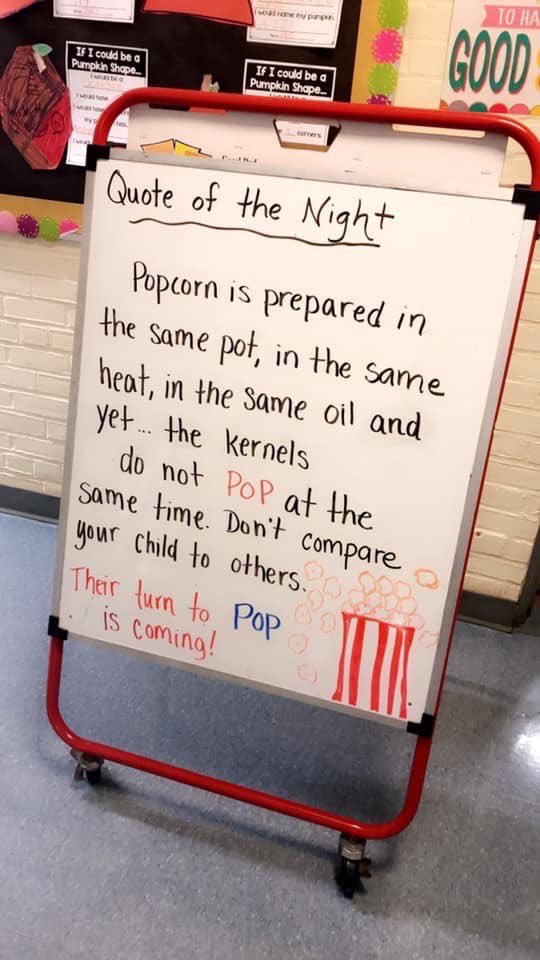 I would name my pumpkin
If I could be a
Pumpkin Shape...
I would be a
I would have
I would have
If I could be a
Pumpkin Shape...
corners
TO HA
GOOD
Quote of the Night
Popcorn is prepared in
the same pot, in the same
heat, in the same oil and
yet... the kernels
do not POP at the
same time. Don't compare
your child to others.
Their turn to POP
is coming!